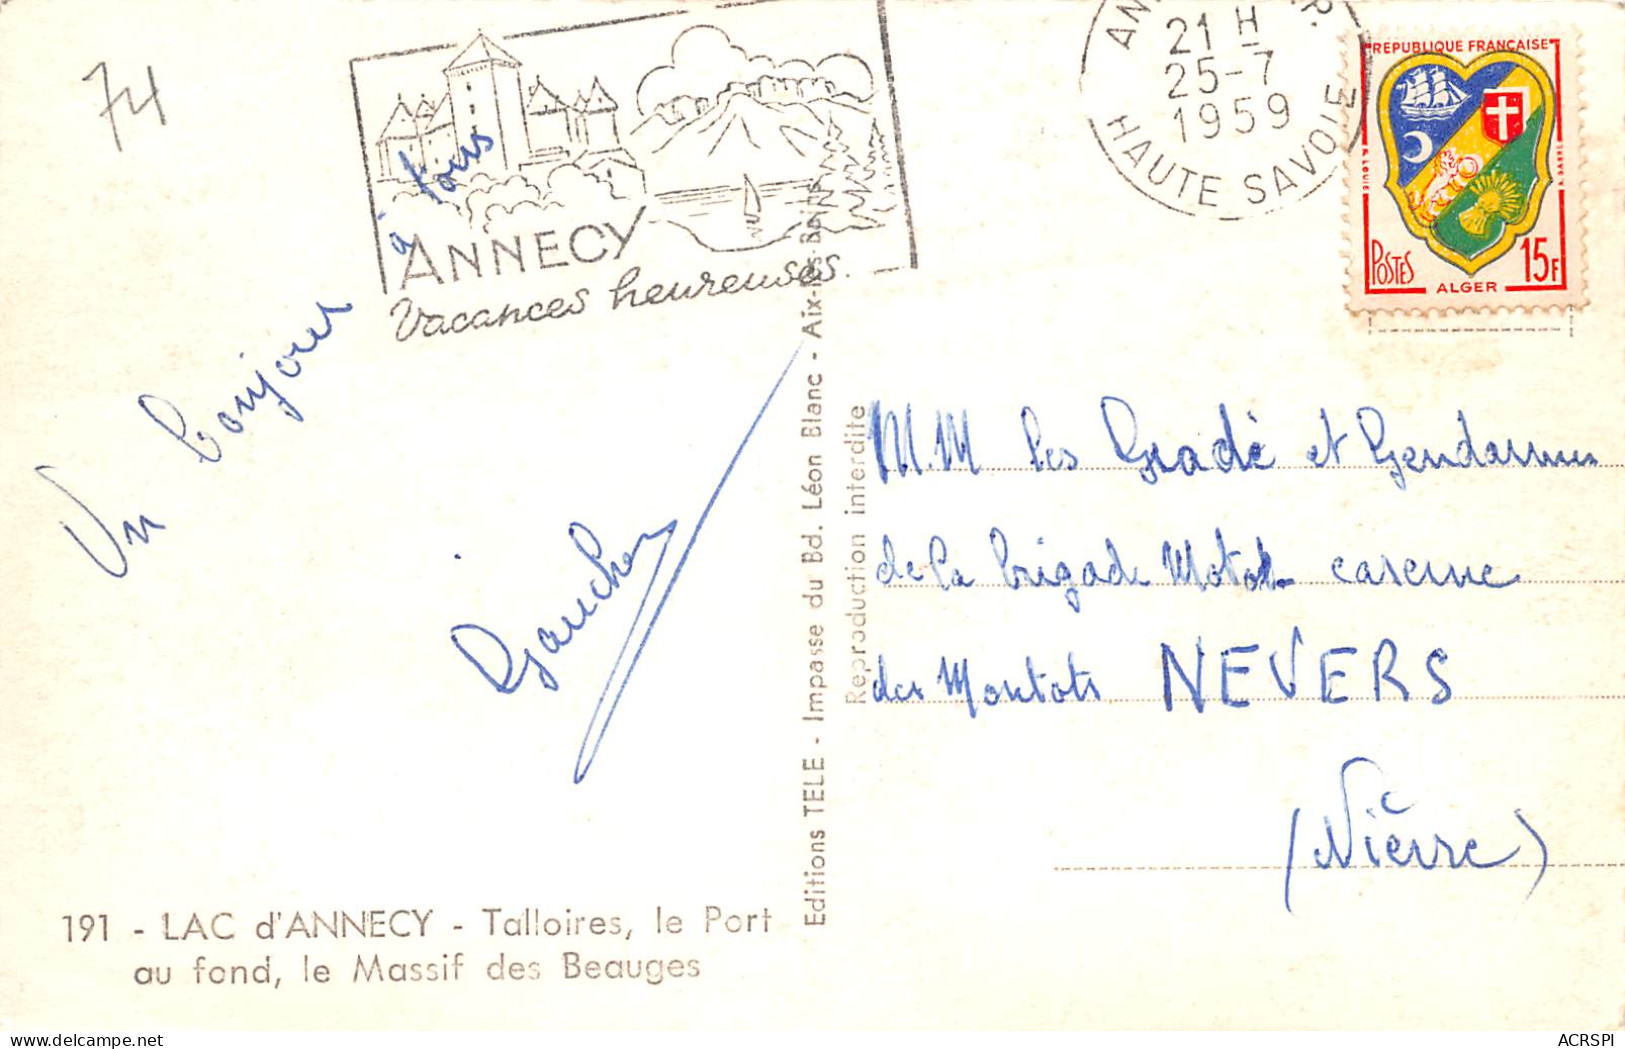 74
ANNECY
Vacances heureuses.
21 H
25-7
1959
HAUTE SAVOIE
REPUBLIQUE FRANÇAISE
POSTES
15F
ALGER
Un bonjour à tous
Gaucher
M.M les Gradé et Gendarmes
de la brigade Motot caserne
des Montots NEVERS
(Nièvre)
Editions TELE - Impasse du Bd. Léon Blanc - Aix-les-Bains
Reproduction interdite
191 - LAC d'ANNECY - Talloires, le Port
au fond, le Massif des Beauges
ACRSPI